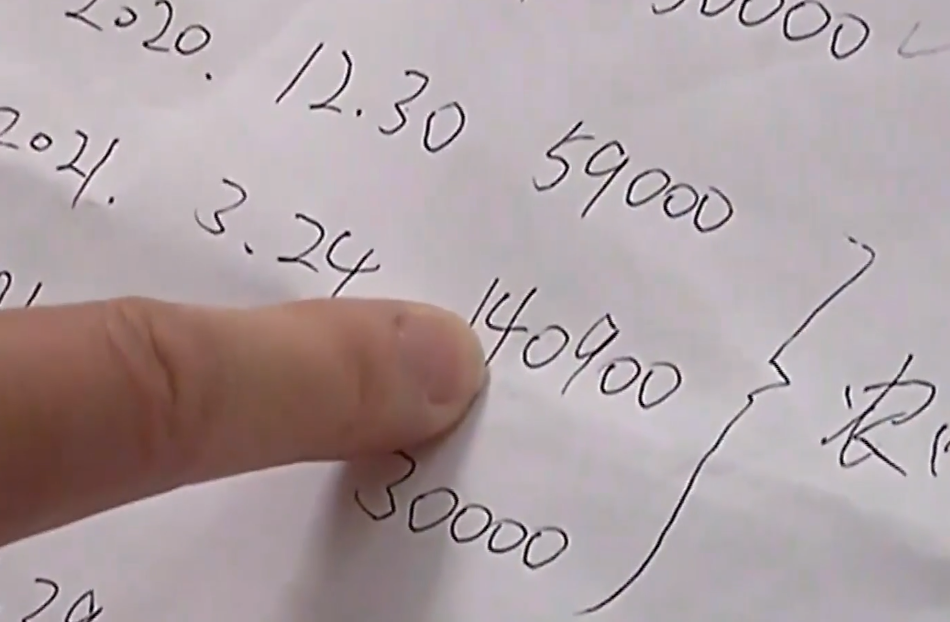 2020. 12.30 59000
2021. 3.24 140900
30000
农